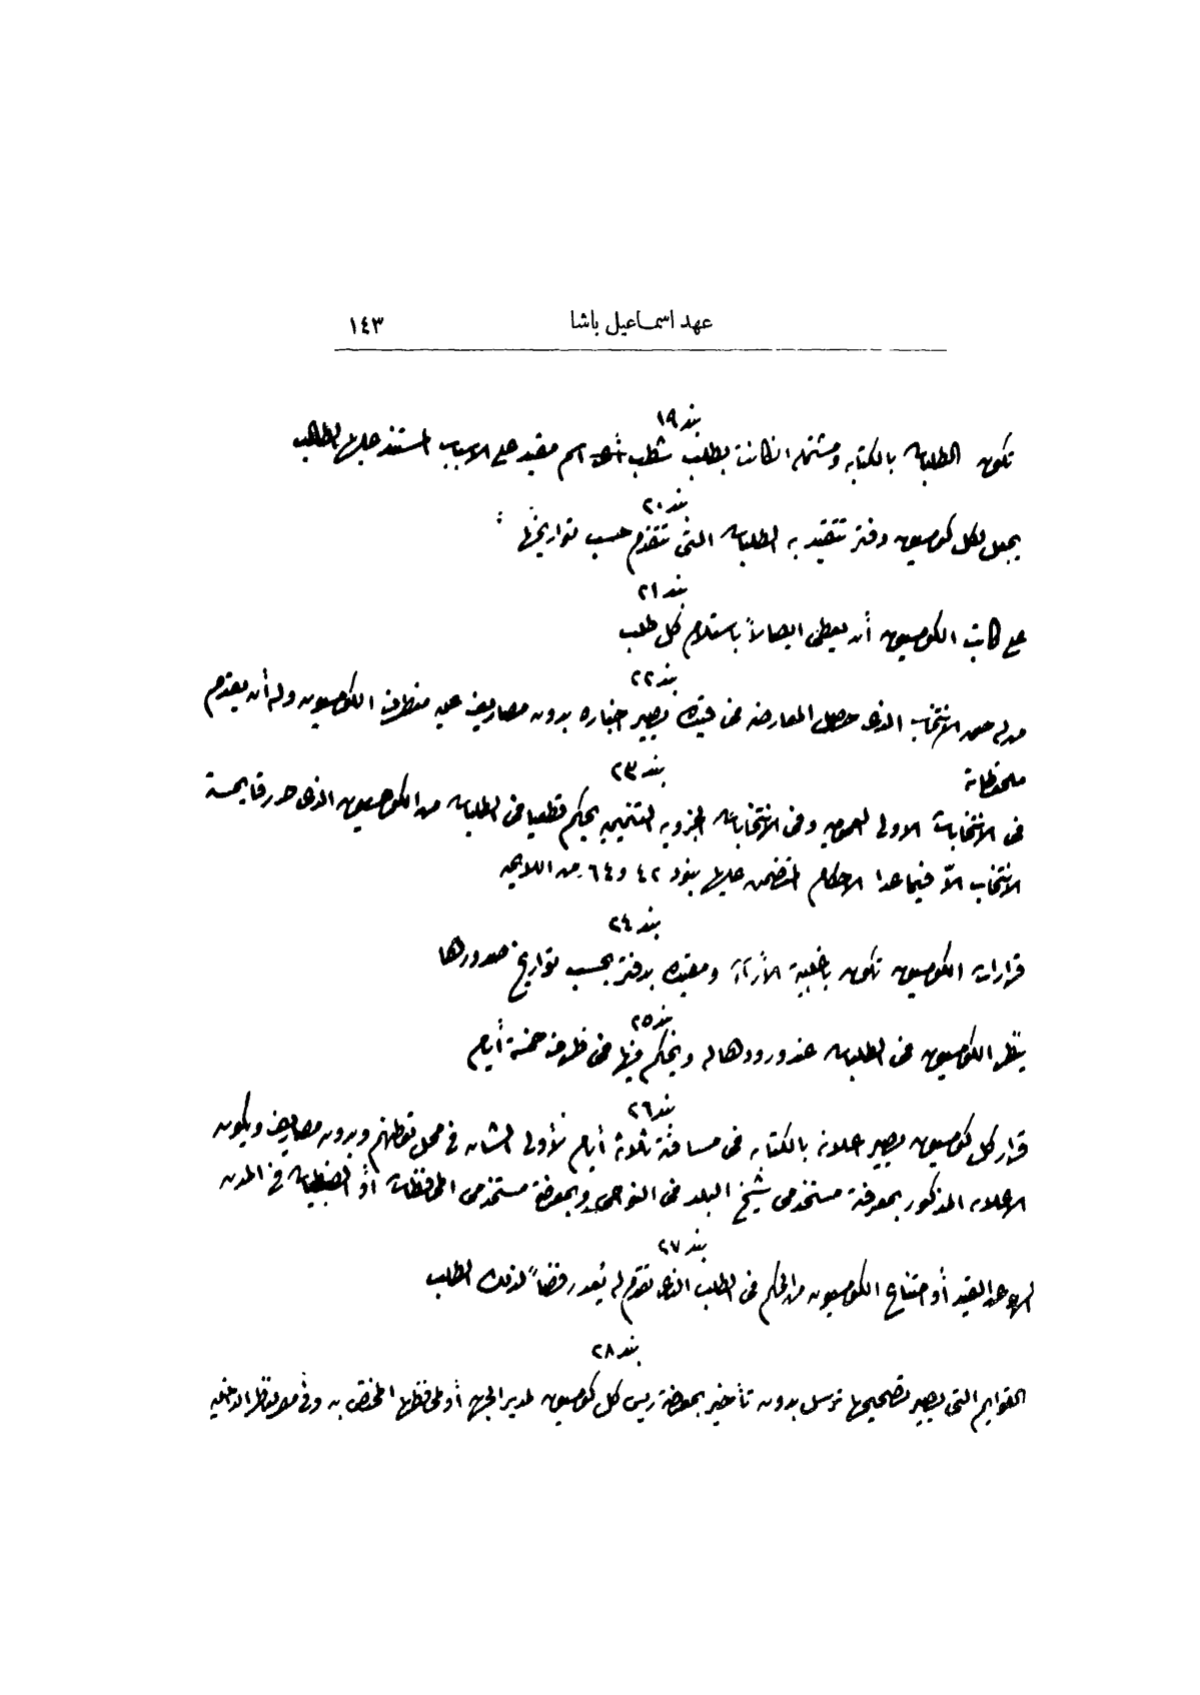 عهد اسماعيل باشا ١٤٣
بند ١٩
تكون الطلبات بالكتابه ومشتمله ان كانت بطلب شطب أحد اسم مقيد على الاسباب المستند عليها الطالب
بند ٢٠
يجعل لكل كومسيون دفتر تتقيد به الطلبات التى تتقدم حسب تواريخها
بند ٢١
على كاتب الكومسيون أن يعطى ايصالاً باستلام كل طلب
بند ٢٢
من له حق الانتخاب الذى حصل المعارضه فى قيده يصير اخباره بدون مصاريف عليه من طرف الكومسيون وله أن يقدم
ملحوظاته
بند ٢٣
فى الانتخابات الاولى العموميه وفى الانتخابات الجزويه التتميميه يحكم قطعيا فى الطلبات من الكومسيون الذى حرر قايمة
الانتخاب الاّ فيما عدا الاحكام المتضمن عليها بنود ٤٢ و ٦٤ من اللايحه
بند ٢٤
قرارات الكومسيون تكون باغلبية الأرآء ومقيده بدفتر بحسب تواريخ صدورها
بند ٢٥
ينظر الكومسيون فى الطلبات عند ورودها له ويحكم فيها فى ظرف خمسة أيام
بند ٢٦
قرار كل كومسيون يصير اعلانه بالكتابه فى مسافة ثلاثة أيام لأولى الشان فى محل توطنهم وبدون مصاريف ويكون
الاعلان المذكور بمعرفة مستخدمى شيخ البلد فى النواحى وبمعرفة مستخدمى المحافظات أو الضبطيات فى المدن
بند ٢٧
القيد أو امتناع الكومسيون من الحكم فى الطلب الذى تقدم له يُعد رفضاً لذلك الطلب
بند ٢٨
القوايم التى يصير تصحيحها ترسل بدون تأخير بمعرفة ريس كل كومسيون لمدير الجهه أو محافظها المختص به وفى الداخليه